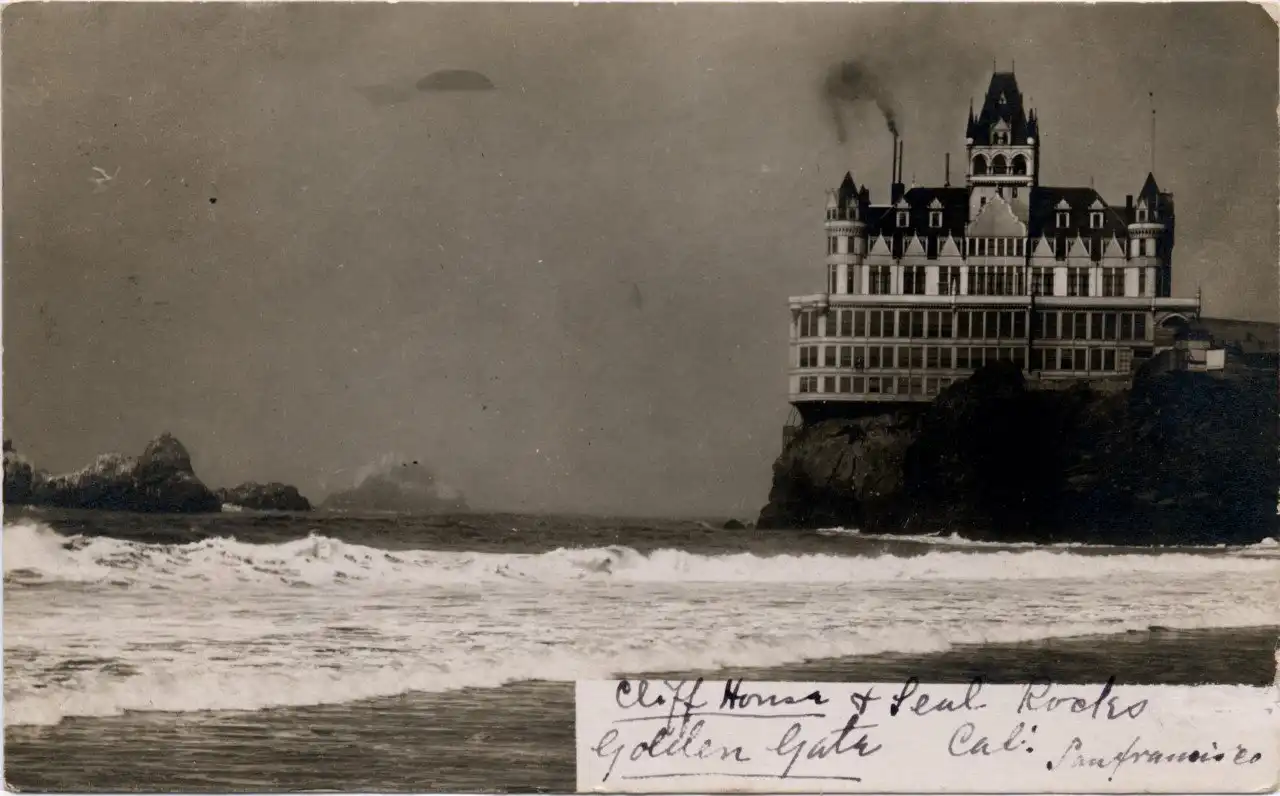 Cliff House & Seal Rocks
Golden Gate Cal. San francisco